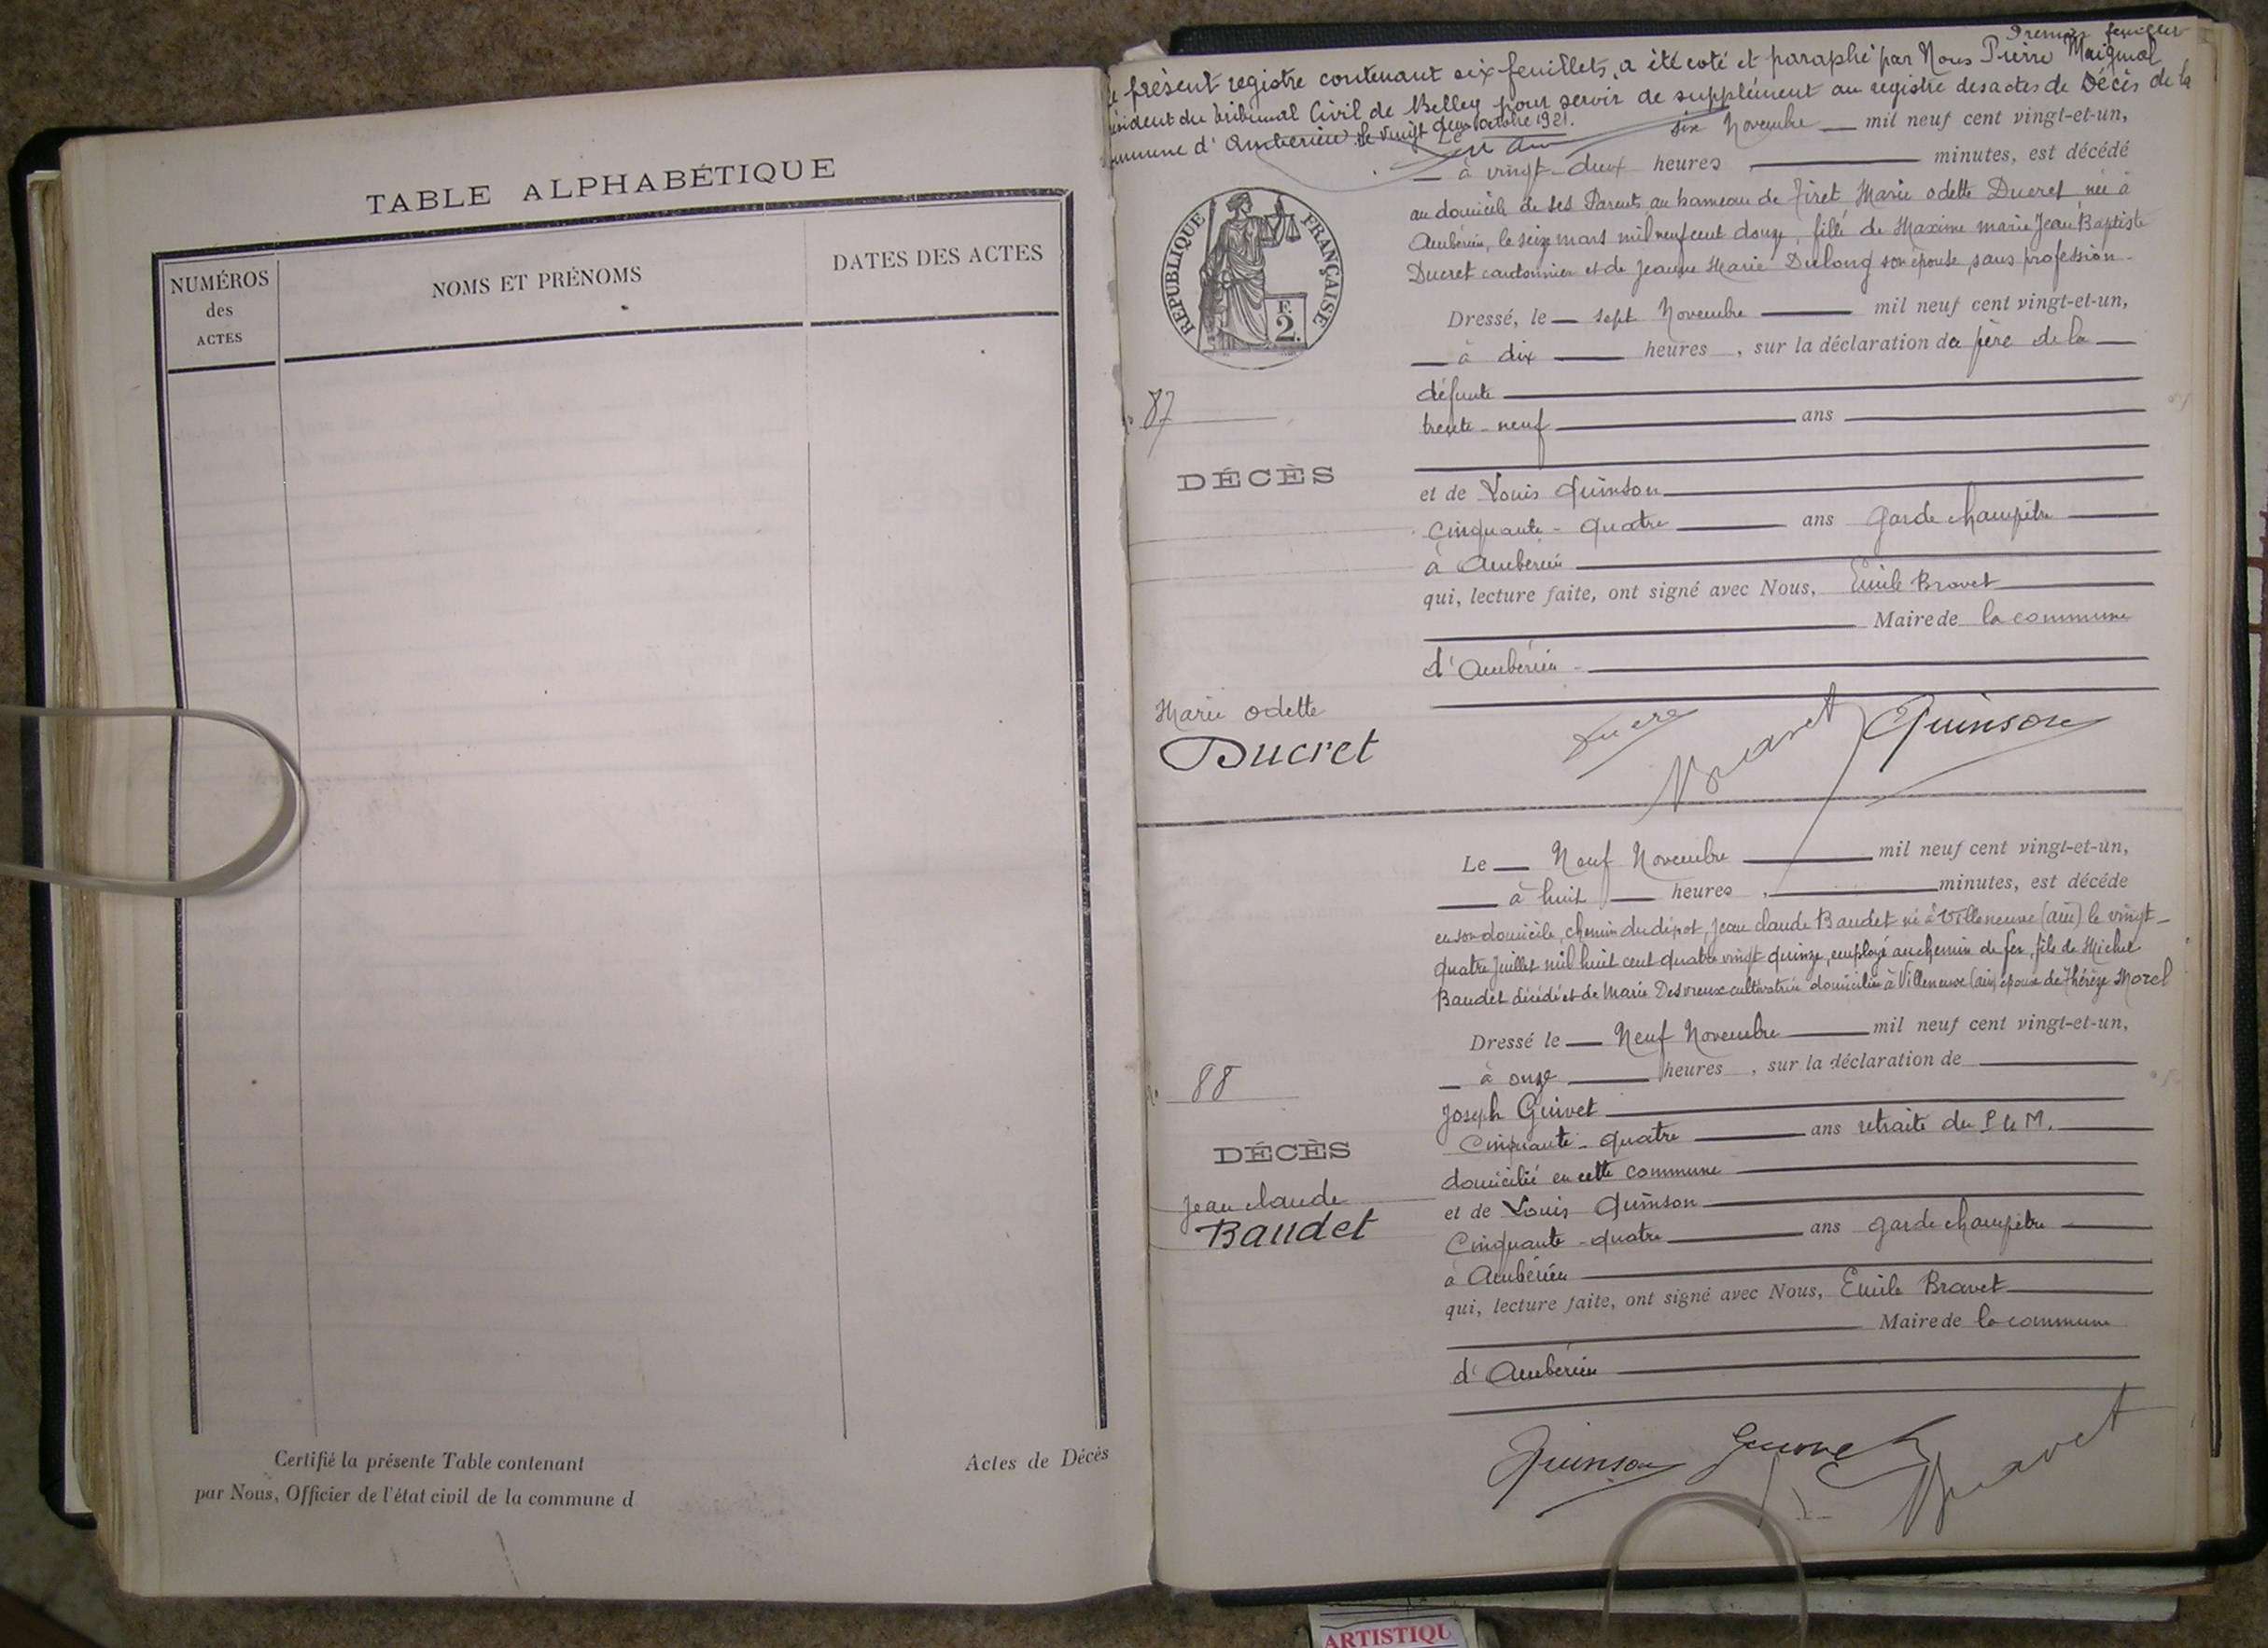 TABLE ALPHABÉTIQUE
NUMÉROS
des
ACTES
NOMS ET PRÉNOMS
DATES DES ACTES
Certifié la présente Table contenant
Actes de Décès
par Nous, Officier de l'état civil de la commune d
Premier feuillet
présent registre contenant six feuillets, a été coté et paraphé par Nous Pierre
du tribunal Civil de Belley pour servir de supplément au registre des actes de Décès de la
d'Ambérieu, le vingt deux octobre 1921.
Le six Novembre mil neuf cent vingt-et-un,
à vingt-deux heures minutes, est décédé
au domicile de ses Parents au hameau de Tiret Marie Odette Ducret née à
Ambérieu, le seize mars mil neuf cent douze, fille de Maxime Marie Jean Baptiste
Ducret cantonnier et de Jeanne Marie Dulong son épouse, sans profession
RÉPUBLIQUE FRANÇAISE
F.
2.
Dressé, le sept Novembre mil neuf cent vingt-et-un,
à dix heures, sur la déclaration du père de la
87
défunte
trente-neuf ans
DÉCÈS
et de Louis Quinson
Cinquante-quatre ans garde champêtre
à Ambérieu
qui, lecture faite, ont signé avec Nous, Emile Bravet
Maire de la commune
d'Ambérieu
Marie Odette
Ducret
Bravet Quinson
Le Neuf Novembre mil neuf cent vingt-et-un,
à huit heures, minutes, est décédé
en son domicile, chemin du dépôt, Jean Claude Baudet né à Villeneuve (ain) le vingt-
quatre Juillet mil huit cent quatre vingt quinze, employé au chemin de fer, fils de Michel
Baudet décédé et de Marie Desvreux cultivatrice domiciliée à Villeneuve (ain) époux de Thérèze Morel
Dressé le Neuf Novembre mil neuf cent vingt-et-un,
à onze heures, sur la déclaration de
88
Joseph Guivet
Cinquante-quatre ans retraité du P L M.
DÉCÈS
domicilié en cette commune
Jean Claude
Baudet
et de Louis Quinson
Cinquante-quatre ans garde champêtre
à Ambérieu
qui, lecture faite, ont signé avec Nous, Emile Bravet
Maire de la commune
d'Ambérieu
Quinson Guivet Bravet
ARTISTIQU